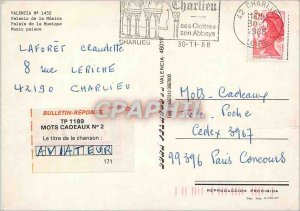 VALENCIA Nº 1432
Palacio de la Música
Palais de la Musique
Music palace
Charlieu
ses Cloîtres
son Abbaye
CHARLIEU
30-11-88
42 CHARLIEU
30
1988
LAFORÊT Claudette
8 rue LERICHE
42190 CHARLIEU
BULLETIN-RÉPONSE
TP 1189
MOTS CADEAUX Nº 2
Le titre de la chanson :
AVIATEUR
171
Mots-Cadeaux
Télé Poche
Cedex 3967
99396 Paris Concours
REPRODUCCION PROHIBIDA
DELCAMPE